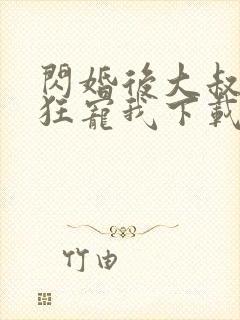 閃婚後大叔
狂寵我下載
竹由